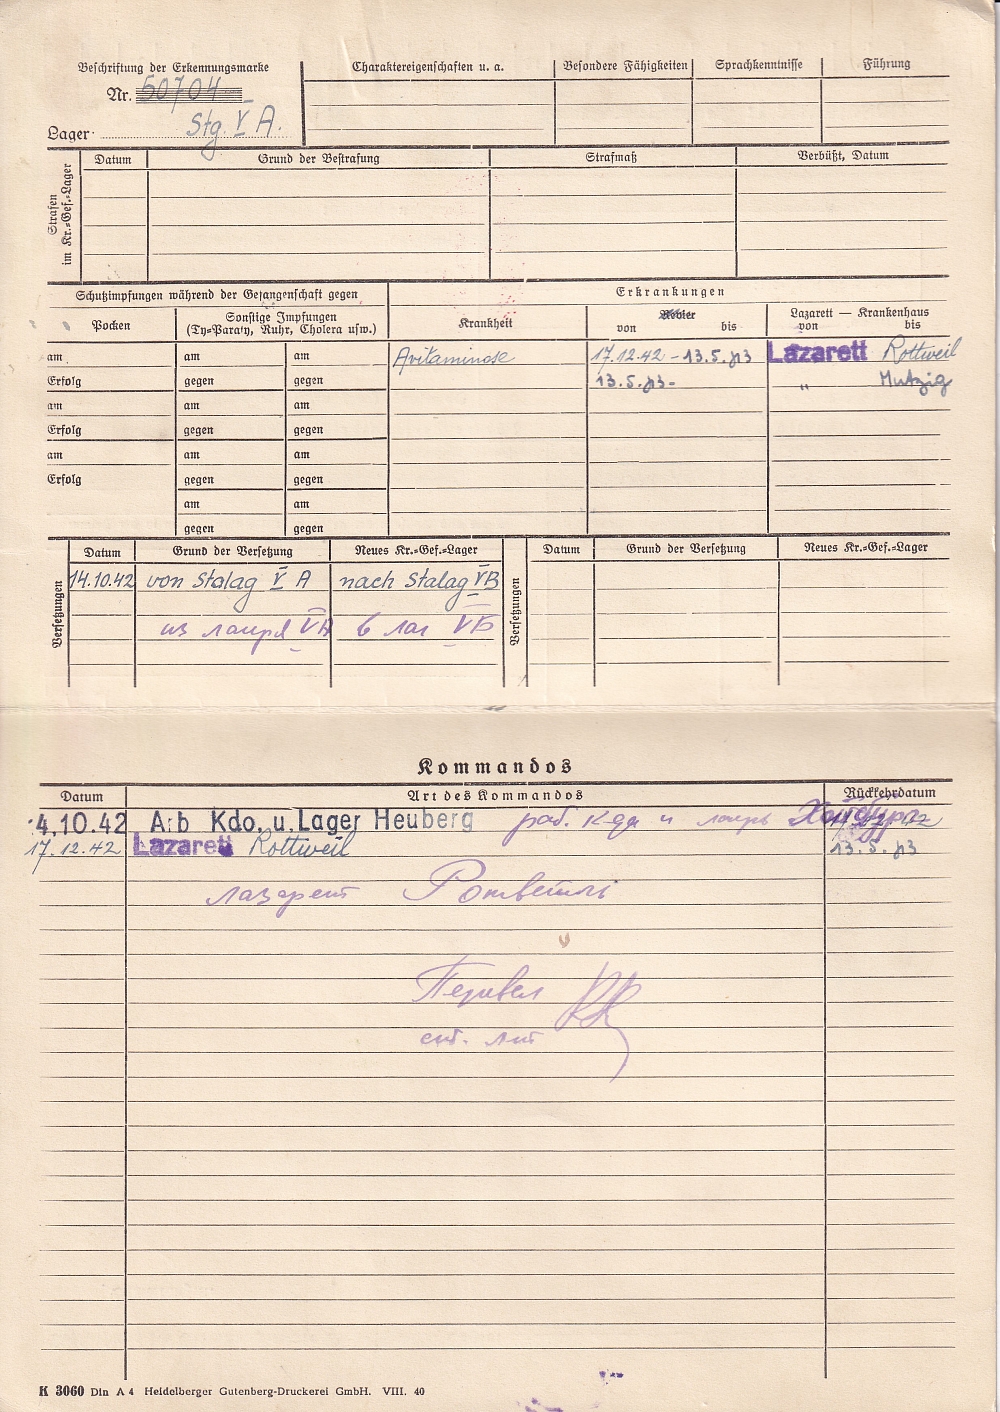 Beschriftung der Erkennungsmarke
Nr. 50704
Lager Stg. V A.
Charaktereigenschaften u. a. Besondere Fähigkeiten Sprachkenntnisse Führung
Strafen im Kr.=Gef.=Lager
Datum Grund der Bestrafung Strafmaß Verbüßt, Datum
Schutzimpfungen während der Gefangenschaft gegen Erkrankungen
Pocken Sonstige Impfungen
(Ty=Paraty, Ruhr, Cholera usw.)
Krankheit Revier
von bis
Lazarett — Krankenhaus
von bis
am am am Avitaminose 17.12.42 - 13.5.43 Lazarett Rottweil
Erfolg gegen gegen 13.5.43- " Mutzig
am am am
Erfolg gegen gegen
am am am
Erfolg gegen gegen
am am
gegen gegen
Versetzungen
Datum Grund der Versetzung Neues Kr.=Gef.=Lager
14.10.42 von Stalag V A nach Stalag V B
из лагря V A в лаг V Б
Versetzungen
Datum Grund der Versetzung Neues Kr.=Gef.=Lager
Kommandos
Datum Art des Kommandos Rückkehrdatum
4.10.42 Arb Kdo. u. Lager Heuberg раб. к-да и лагрь
17.12.42 Lazarett Rottweil 13.5.43
лазарет Ротвейль
Перевел
снт. лит
K 3060 Din A 4 Heidelberger Gutenberg-Druckerei GmbH. VIII. 40